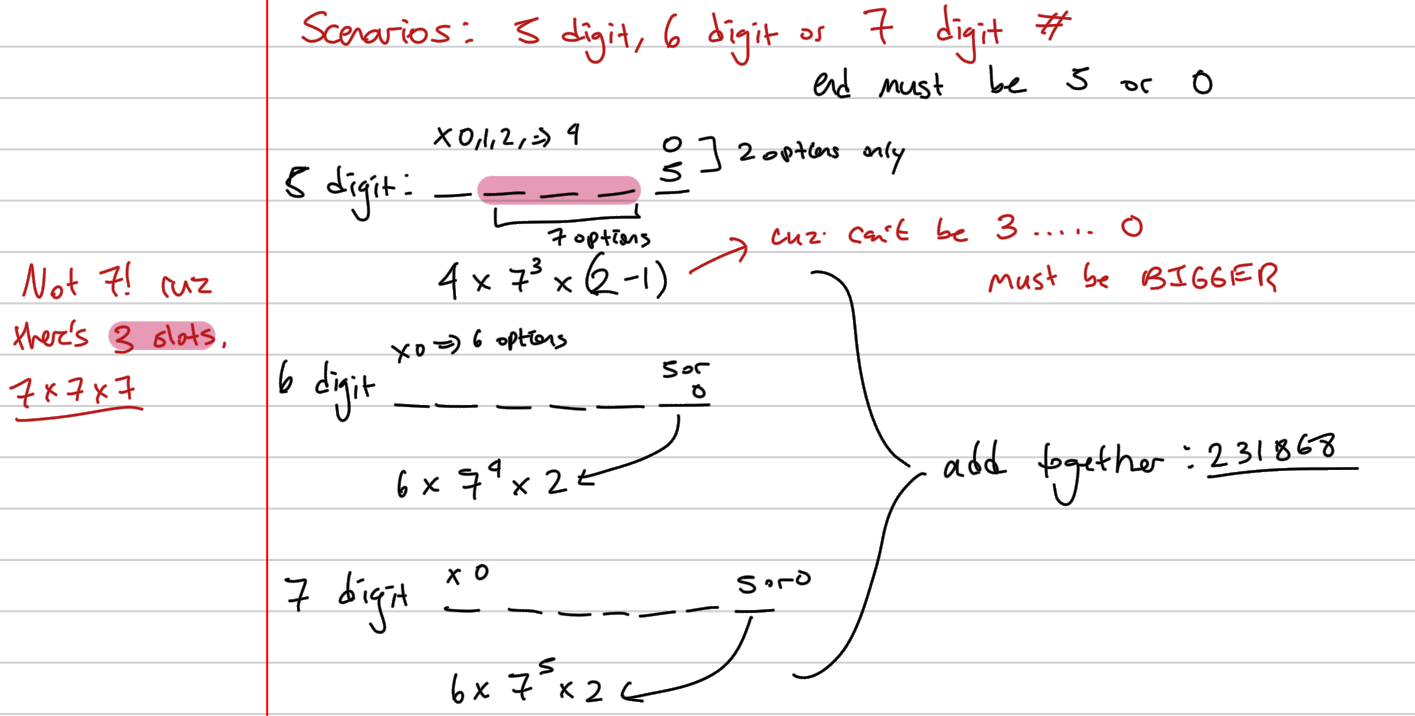 Scenarios: 5 digit, 6 digit or 7 digit #
end must be 5 or 0
x 0,1,2, => 4
0
5 ] 2 options only
5 digit: _ _ _ _ _
7 options
4 x 7³ x (2-1) → cuz can't be 3 ..... 0
must be BIGGER
Not 7! cuz
there's 3 slots.
7 x 7 x 7
x 0 => 6 options
5 or
0
6 digit _ _ _ _ _ _
6 x 7⁴ x 2
add together: 231868
x 0
5 or 0
7 digit _ _ _ _ _ _ _
6 x 7⁵ x 2